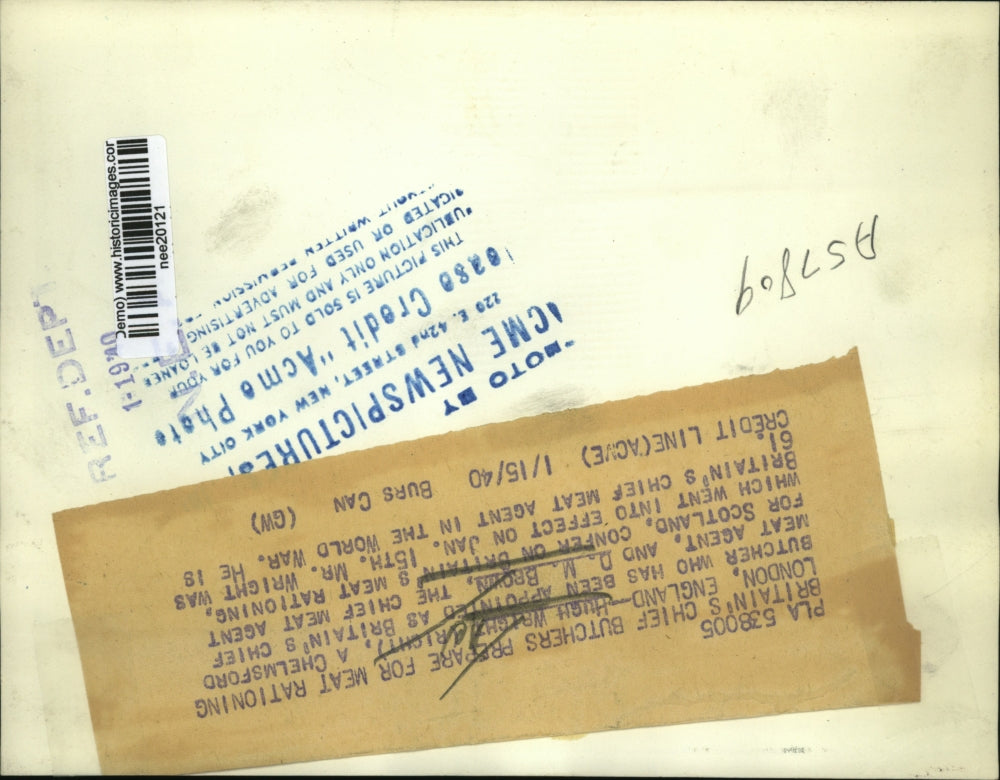 Demo) www.historicimages.cor
nee20121
REF. DEPT
1-1940
A57809
PHOTO BY
ACME NEWSPICTURES,
220 E. 42nd STREET, NEW YORK CITY
Credit "Acme Photo
THIS PICTURE IS SOLD TO YOU FOR YOUR
PUBLICATION ONLY AND MUST NOT BE LOANED
USED FOR ADVERTISING
WITHOUT WRITTEN PERMISSION
PLA 538005
BRITAIN'S CHIEF BUTCHERS PREPARE FOR MEAT RATIONING
LONDON, ENGLAND--HUGH WRIGHT (RIGHT), A CHELMSFORD
BUTCHER WHO HAS BEEN APPOINTED AS BRITAIN'S CHIEF
MEAT AGENT, AND D. M. BROWN, THE CHIEF MEAT AGENT
FOR SCOTLAND, CONFER ON BRITAIN'S MEAT RATIONING,
WHICH WENT INTO EFFECT ON JAN. 15TH. MR. WRIGHT WAS
BRITAIN'S CHIEF MEAT AGENT IN THE WORLD WAR. HE IS
61.
CREDIT LINE(ACME) 1/15/40 BURS CAN (GW)